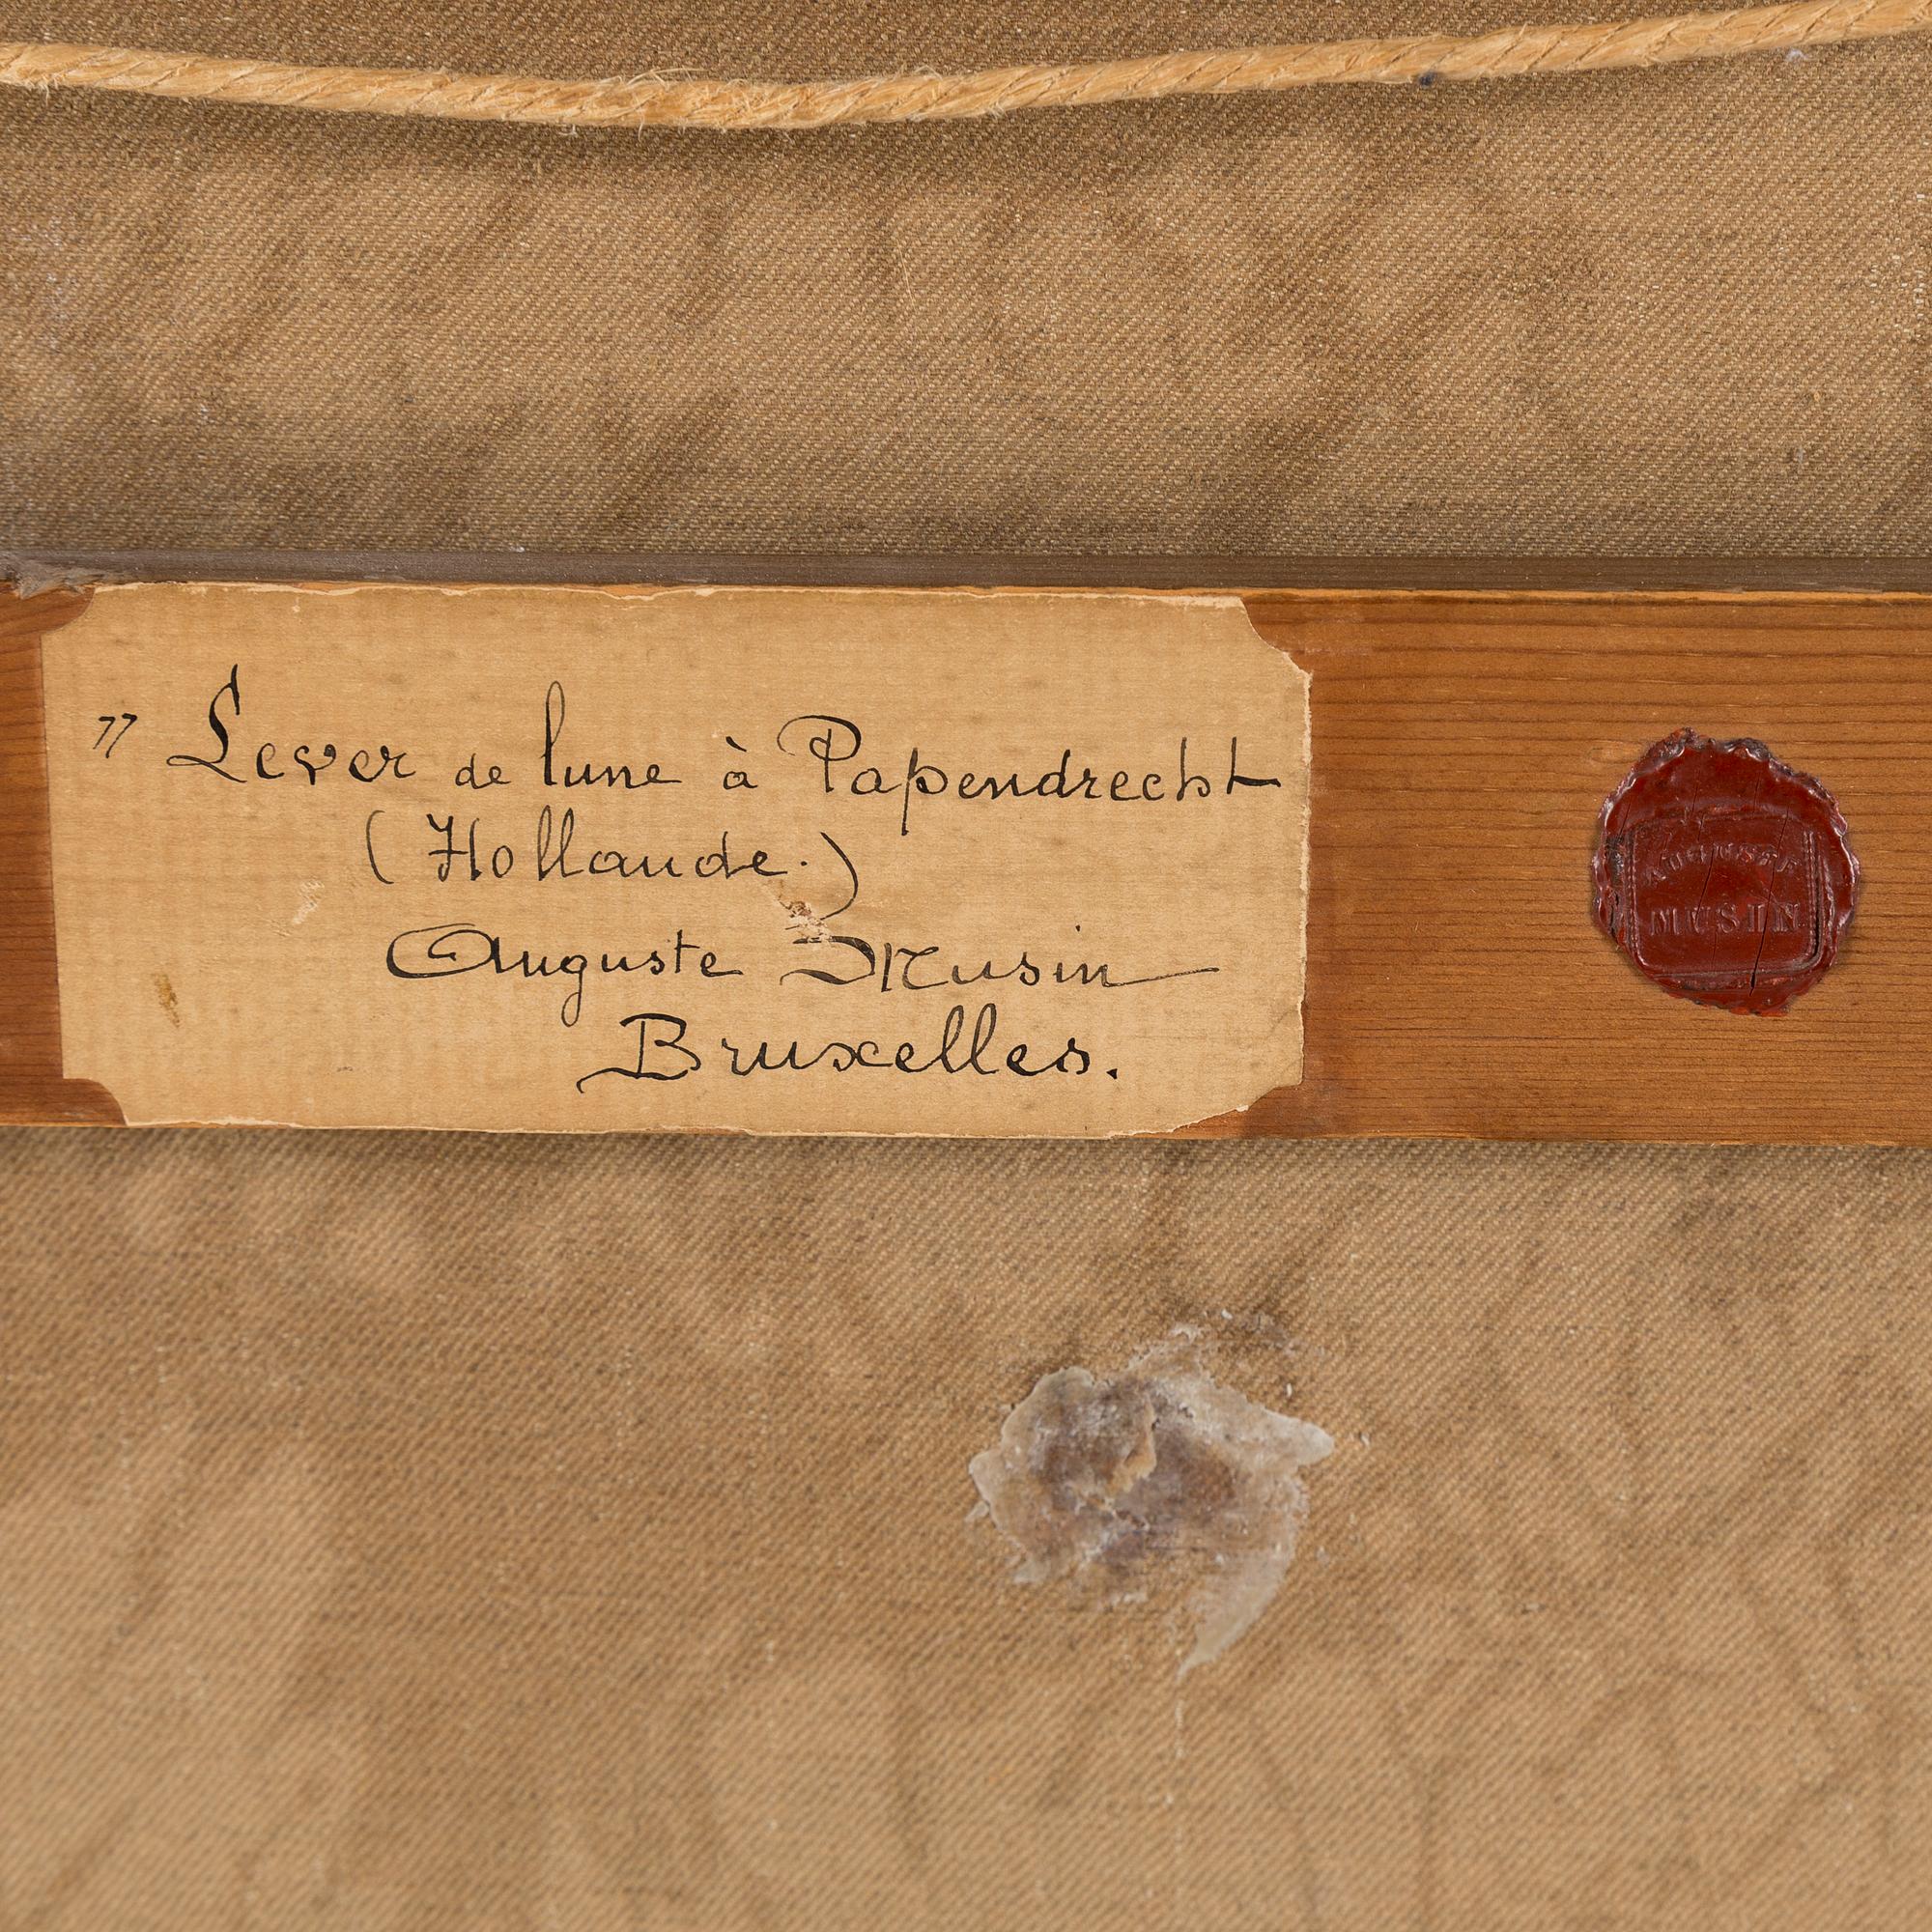 " Lever de lune à Papendrecht
(Hollande.)
Auguste Musin
Bruxelles.
AUGUSTE
MUSIN